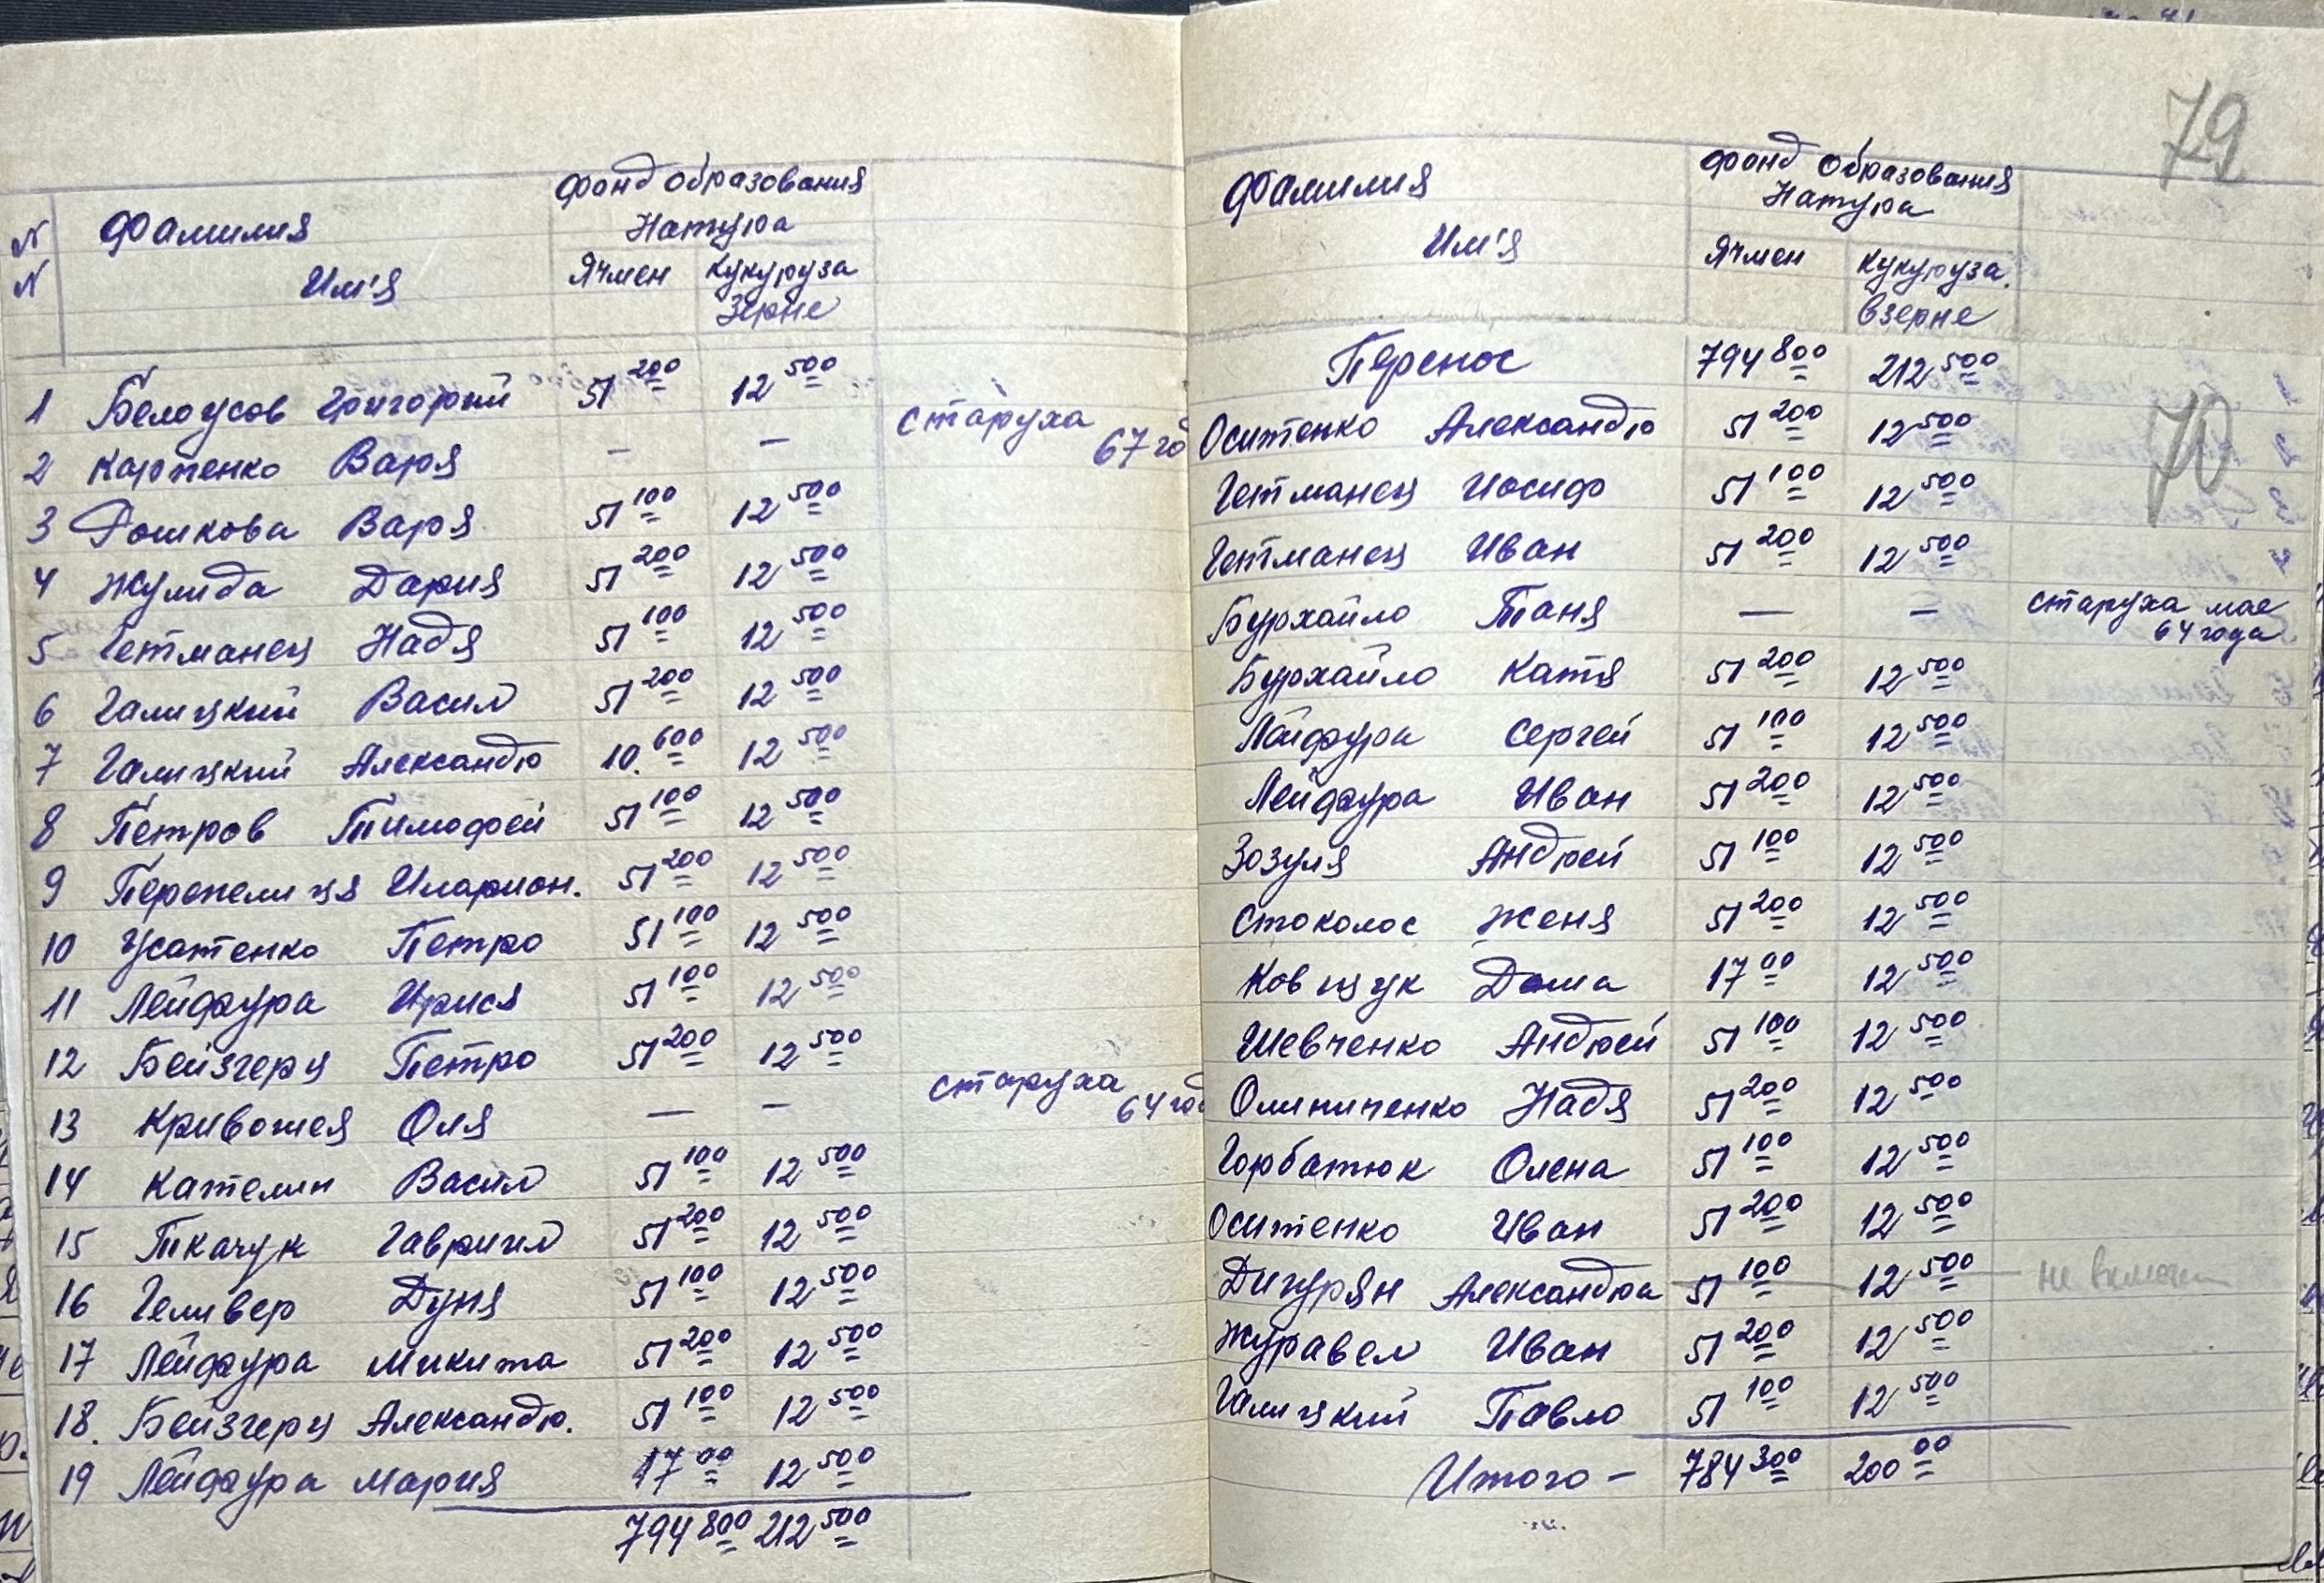 фонд образования
N Фамилия Натура
N Им'я Ячмен Кукуруза
Зерне
1 Белоусов Григорий 51 200 12 500
2 Карпенко Варя — — старуха
67 го
3 Рошкова Варя 51 100 12 500
4 Жулида Дария 51 200 12 500
5 Гетманец Надя 51 100 12 500
6 Галицкий Васил 51 200 12 500
7 Галицкий Александр 10. 600 12 500
8 Петров Тимофей 51 100 12 500
9 Перепелиця Иларион. 51 200 12 500
10 Усатенко Петро 51 100 12 500
11 Лейфура Ирися 51 100 12 500
12 Бейзгерц Петро 51 200 12 500
13 Кривошея Оля — — старуха
64 год
14 Кателин Васил 51 100 12 500
15 Ткачук Гаврил 51 200 12 500
16 Геливер Дуня 51 100 12 500
17 Лейфура Микита 51 200 12 500
18. Бейзгерц Александр. 51 100 12 500
19 Лейфура Мария 17 00 12 500
794 800 212 500
79
фонд образования
Фамилия Натура
Им'я Ячмен Кукуруза.
взерне
Перенос 794 800 212 500
70
Оситенко Александр 51 200 12 500
Гетманец Иосиф 51 100 12 500
Гетманец Иван 51 200 12 500
Бурхайло Таня — — старуха мае
64 года
Бурхайло Катя 51 200 12 500
Лейфура Сергей 51 100 12 500
Лейфура Иван 51 200 12 500
Зозуля Андрей 51 100 12 500
Стоколос Женя 51 200 12 500
Ковцук Дома 17 00 12 500
Шевченко Андрей 51 100 12 500
Олиниченко Надя 51 200 12 500
Горбатюк Олена 51 100 12 500
Оситенко Иван 51 200 12 500
Дигурян Александра 51 100 12 500 не включ
Журавел Иван 51 200 12 500
Галицкий Павло 51 100 12 500
Итого — 784 300 200 00